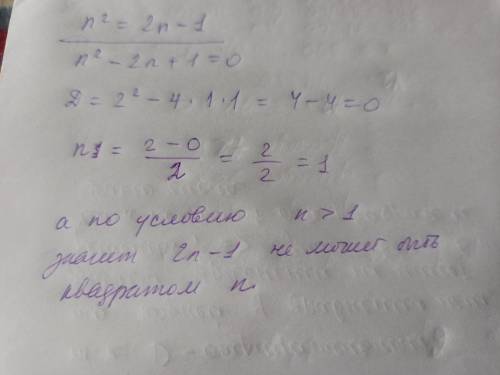 n² = 2n-1
n² - 2n + 1 = 0
D = 2² - 4 · 1 · 1 = 4 - 4 = 0
n1 = (2 - 0)/2 = 2/2 = 1
а по условию n > 1
значит 2n-1 не может быть
квадратом n